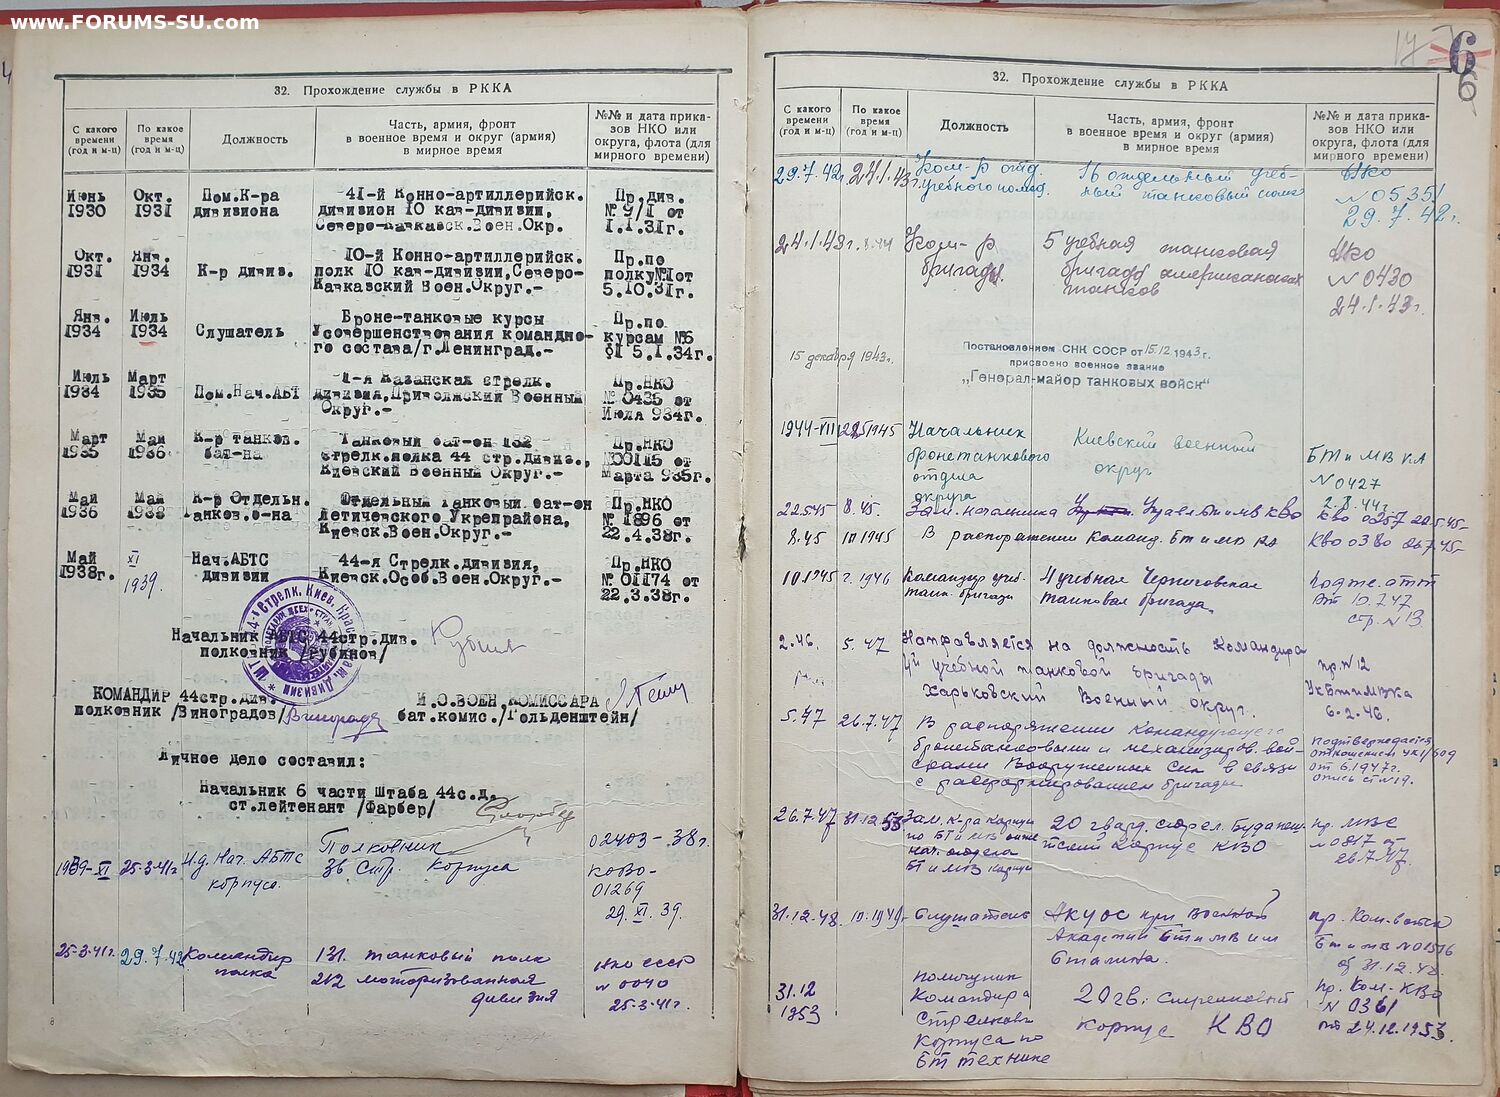 www.FORUMS-SU.com
32. Прохождение службы в РККА
С какого времени (год и м-ц)
По какое время (год и м-ц)
Должность
Часть, армия, фронт в военное время и округ (армия) в мирное время
№№ и дата приказов НКО или округа, флота (для мирного времени)
Июнь 1930
Окт. 1931
Пом.К-ра дивизиона
41-й Конно-артиллерийск. дивизион 10 кав-дивизии, Северо-Кавказск.Воен.Окр.
Пр.див. № 9/I от 1.1.31г.
Окт. 1931
Янв. 1934
К-р дивиз.
10-й Конно-артиллерийск. полк 10 кав-дивизии, Северо-Кавказский Воен.Округ.-
Пр.по полку №1 от 5.10.31г.
Янв. 1934
Июль 1934
Слушатель
Броне-танковые курсы Усовершенствования командно-го состава/г.Ленинград.-
Пр.по курсам №6 §I 5.I.34г.
Июль 1934
Март 1935
Пом.Нач.АБТ
1-я Казанская стрелк. дивизия, Приволжский Военный Округ.-
Пр.НКО № 0435 от Июля 934г.
Март 1935
Май 1936
К-р танков. бат-на
Танковый бат-он 132 стрелк.полка 44 стрел.дивиз., Киевский Военный Округ.-
Пр.НКО №00115 от Марта 935г.
Май 1936
Май 1938
К-р Отдельн. танков.б-на
Отдельный Танковый бат-он Летичевского Укрепрайона, Киевск.Воен.Округ.-
Пр.НКО № 1896 от 22.4.38г.
Май 1938г.
XI 1939.
Нач.АБТС дивизии
44-я Стрелк.дивизия, Киевск.Особ.Воен.Округ.-
Пр.НКО № 01174 от 22.3.38г.
Начальник АБТС 44стр.див.
полковник /Рубинов/
КОМАНДИР 44стр.див.
полковник /Виноградов/
И.О.ВОЕН.КОМИССАРА
бат.комис./Гольденштейн/
Личное дело составил:
Начальник 6 части Штаба 44с.д.
ст.лейтенант /Фарбер/
Полковник
02403-38г.
1939-XI
25-3-41г
И.д. Нач. АБТС корпуса.
36 Стр. корпуса
КОВО-01269 29.XI.39.
25-3-41г.
29.7.42
Командир полка
131 танковый полк 212 моторизованная дивизия
НКО СССР № 0040 25-3-41г.
8
6
6
32. Прохождение службы в РККА
С какого времени (год и м-ц)
По какое время (год и м-ц)
Должность
Часть, армия, фронт в военное время и округ (армия) в мирное время
№№ и дата приказов НКО или округа, флота (для мирного времени)
29.7.42г.
24.1.43г.
Ком-р отд. учебного полка.
16 отдельный учебный танковый полк
НКО № 05351 29.7.42г.
24.1.43г.
8.44
Ком-р бригады.
5 учебная танковая бригада американских танков
НКО № 0430 24.1.43г.
15 декабря 1943г.
Постановлением СНК СССР от 15.12.1943г.
присвоено военное звание
„Генерал-майор танковых войск“
1944-VII
22.5.1945
Начальник бронетанкового отдела округа
Киевский военный округ
БТ и МВ КА № 0427 2.8.44г.
22.5.45
8.45.
Зам. начальника
Упр. БТ и МВ КВО
КВО 0257 22.5.45-
8.45
10.1945
В распоряжении команд. БТ и МВ КА
КВО 0380 26.7.45-
10.1945
г. 1946
Командир учеб. танк. бригады
4 учебная Черниговская танковая бригада.
Подтв. атт 10.7.47 стр. № 13
2.46.
5.47
Направляется на должность командира 4й учебной танковой бригады Харьковский Военный округ.
пр. № 12 Ук БТ и МВ КА 6.2.46.
5.47
26.7.47
В распоряжении Командующего бронетанковыми и механизиров. войсками Вооруженных Сил в связи с расформированием бригады
Подтверждается отношением
от 6.1947г.
26.7.47
31.12.53
Зам. к-ра корпуса по БТ и МВ
БТ и МВ корпуса
20 гвард. стрел. Будапештский корпус КВО
пр. МВС № 0817 от 26.7.47.
31.12.48.
10.1949-
Слушатель
АКУОС при Военной Академии БТ и МВ им Сталина.
пр. Ком. войск БТ и МВ № 01516 от 31.12.48.
31.12 1953
помощник Командира стрелков. Корпуса по БТ технике
20 гв. Стрелковый корпус КВО
пр. Ком-КВО № 0361 от 24.12.1953.